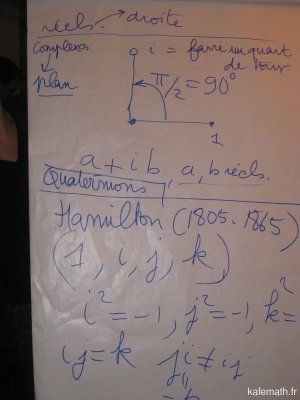 réels → droite
Complexes i = faire un quart de tour
↓
plan π/2 = 90°
1
a + i b, a, b réels.
Quaternions
Hamilton (1805-1865)
(1, i, j, k)
i² = -1, j² = -1, k² =
ij = k ji ≠ ij
kafemath.fr